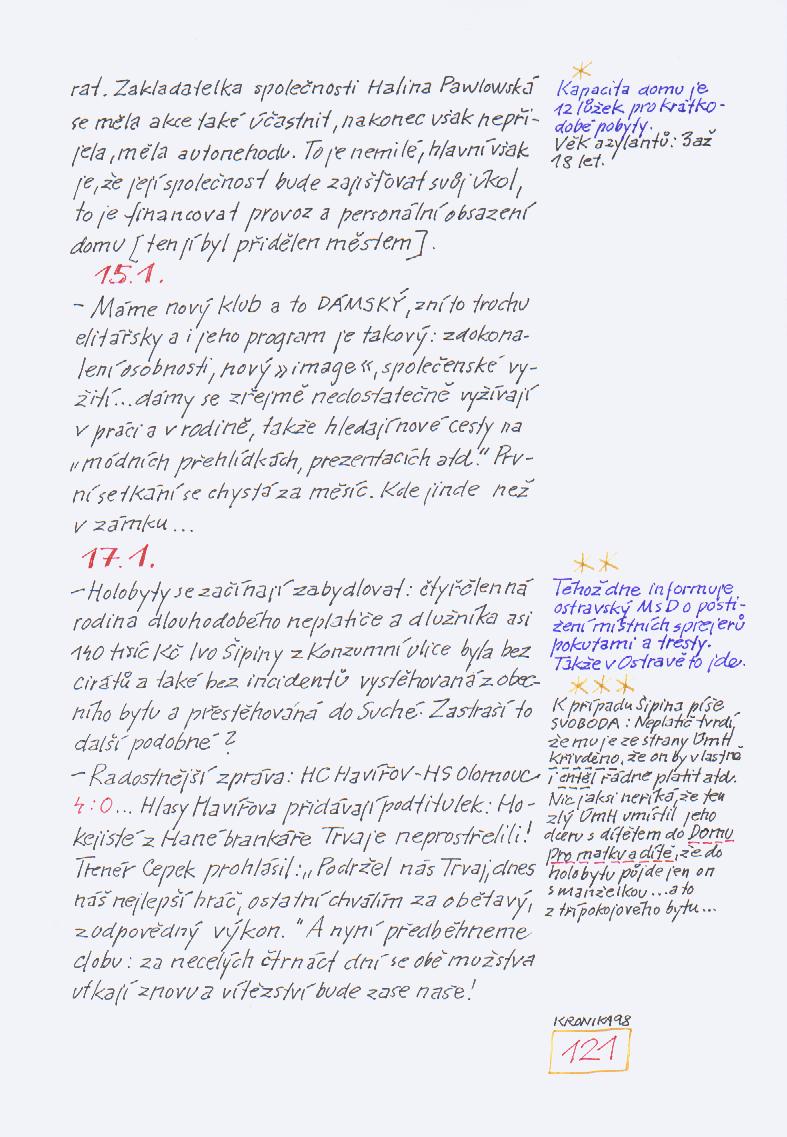 rat. Zakladatelka společnosti Halina Pawlowská
se měla akce také účastnit, nakonec však nepři-
jela, měla autonehodu. To je nemilé, hlavní však
je, že její společnost bude zajišťovat svůj úkol,
to je financovat provoz a personální obsazení
domu [ten jí byl přidělen městem].
15.1.
- Máme nový klub a to DÁMSKÝ, zní to trochu
elitářsky a i jeho program je takový: zdokona-
lení osobnosti, nový »image«, společenské vy-
žití...dámy se zřejmě nedostatečně vyžívají
v práci a v rodině, takže hledají nové cesty na
„módních přehlídkách, prezentacích atd." Prv-
ní setkání se chystá za měsíc. Kde jinde než
v zámku...
17.1.
- Holobyty se začínají zabydlovat: čtyřčlenná
rodina dlouhodobého neplatiče a dlužníka asi
140 tisíc Kč Ivo Šipiny z Konzumní ulice byla bez
cirátů a také bez incidentů vystěhovaná z obec-
ního bytu a přestěhovaná do Suché. Zastraší to
další podobné?
- Radostnější zpráva: HC Havířov-HS Olomouc
4:0... Hlasy Havířova přidávají podtitulek: Ho-
kejisté z Hané brankáře Trvaje neprostřelili!
Trenér Cepek prohlásil: „Podržel nás Trvaj, dnes
náš nejlepší hráč, ostatní chválím za obětavý,
zodpovědný výkon." A nyní předběhneme
dobu: za necelých čtrnáct dní se obě mužstva
utkají znovu a vítězství bude zase naše!
*
Kapacita domu je
12 lůžek pro krátko-
dobé pobyty.
Věk azylantů: 3 až
18 let.
**
Téhož dne informuje
ostravský MsD o posti-
žení místních sprejerů
pokutami a tresty.
Takže v Ostravě to jde.
***
K případu Šipina píše
SVOBODA: Neplatič tvrdí,
že mu je ze strany ÚmH
křivděno, že on by vlastně
i chtěl řádně platit atd.
Nic jaksi neříká, že ten
zlý ÚmH umístil jeho
dceru s dítětem do Domu
pro matku a dítě, že do
holobytu půjde jen on
s manželkou...a to
z třípokojového bytu...
KRONIKA 98
121